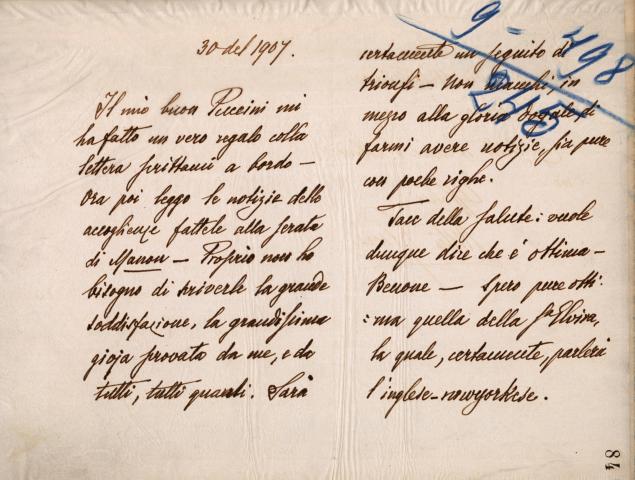 30 del 1907.
Il mio buon Puccini mi
ha fatto un vero regalo colla
lettera scrittami a bordo —
Ora poi leggo le notizie delle
accoglienze fattele alla serata
di Manon — Proprio non ho
bisogno di scriverle la grande
soddisfazione, la grandissima
gioja provata da me, e da
tutti, tutti quanti. Sarà
9 - 498
certamente un seguito di
trionfi — Non manchi, in
mezzo alla gloria di
farmi avere notizie, sia pure
con poche righe.
Tace della salute: vuole
dunque dire che é ottima —
Benone — Spero pure otti:
:ma quella della Sra Elvira,
la quale, certamente, parlerà
l'inglese-newyorkese.
84